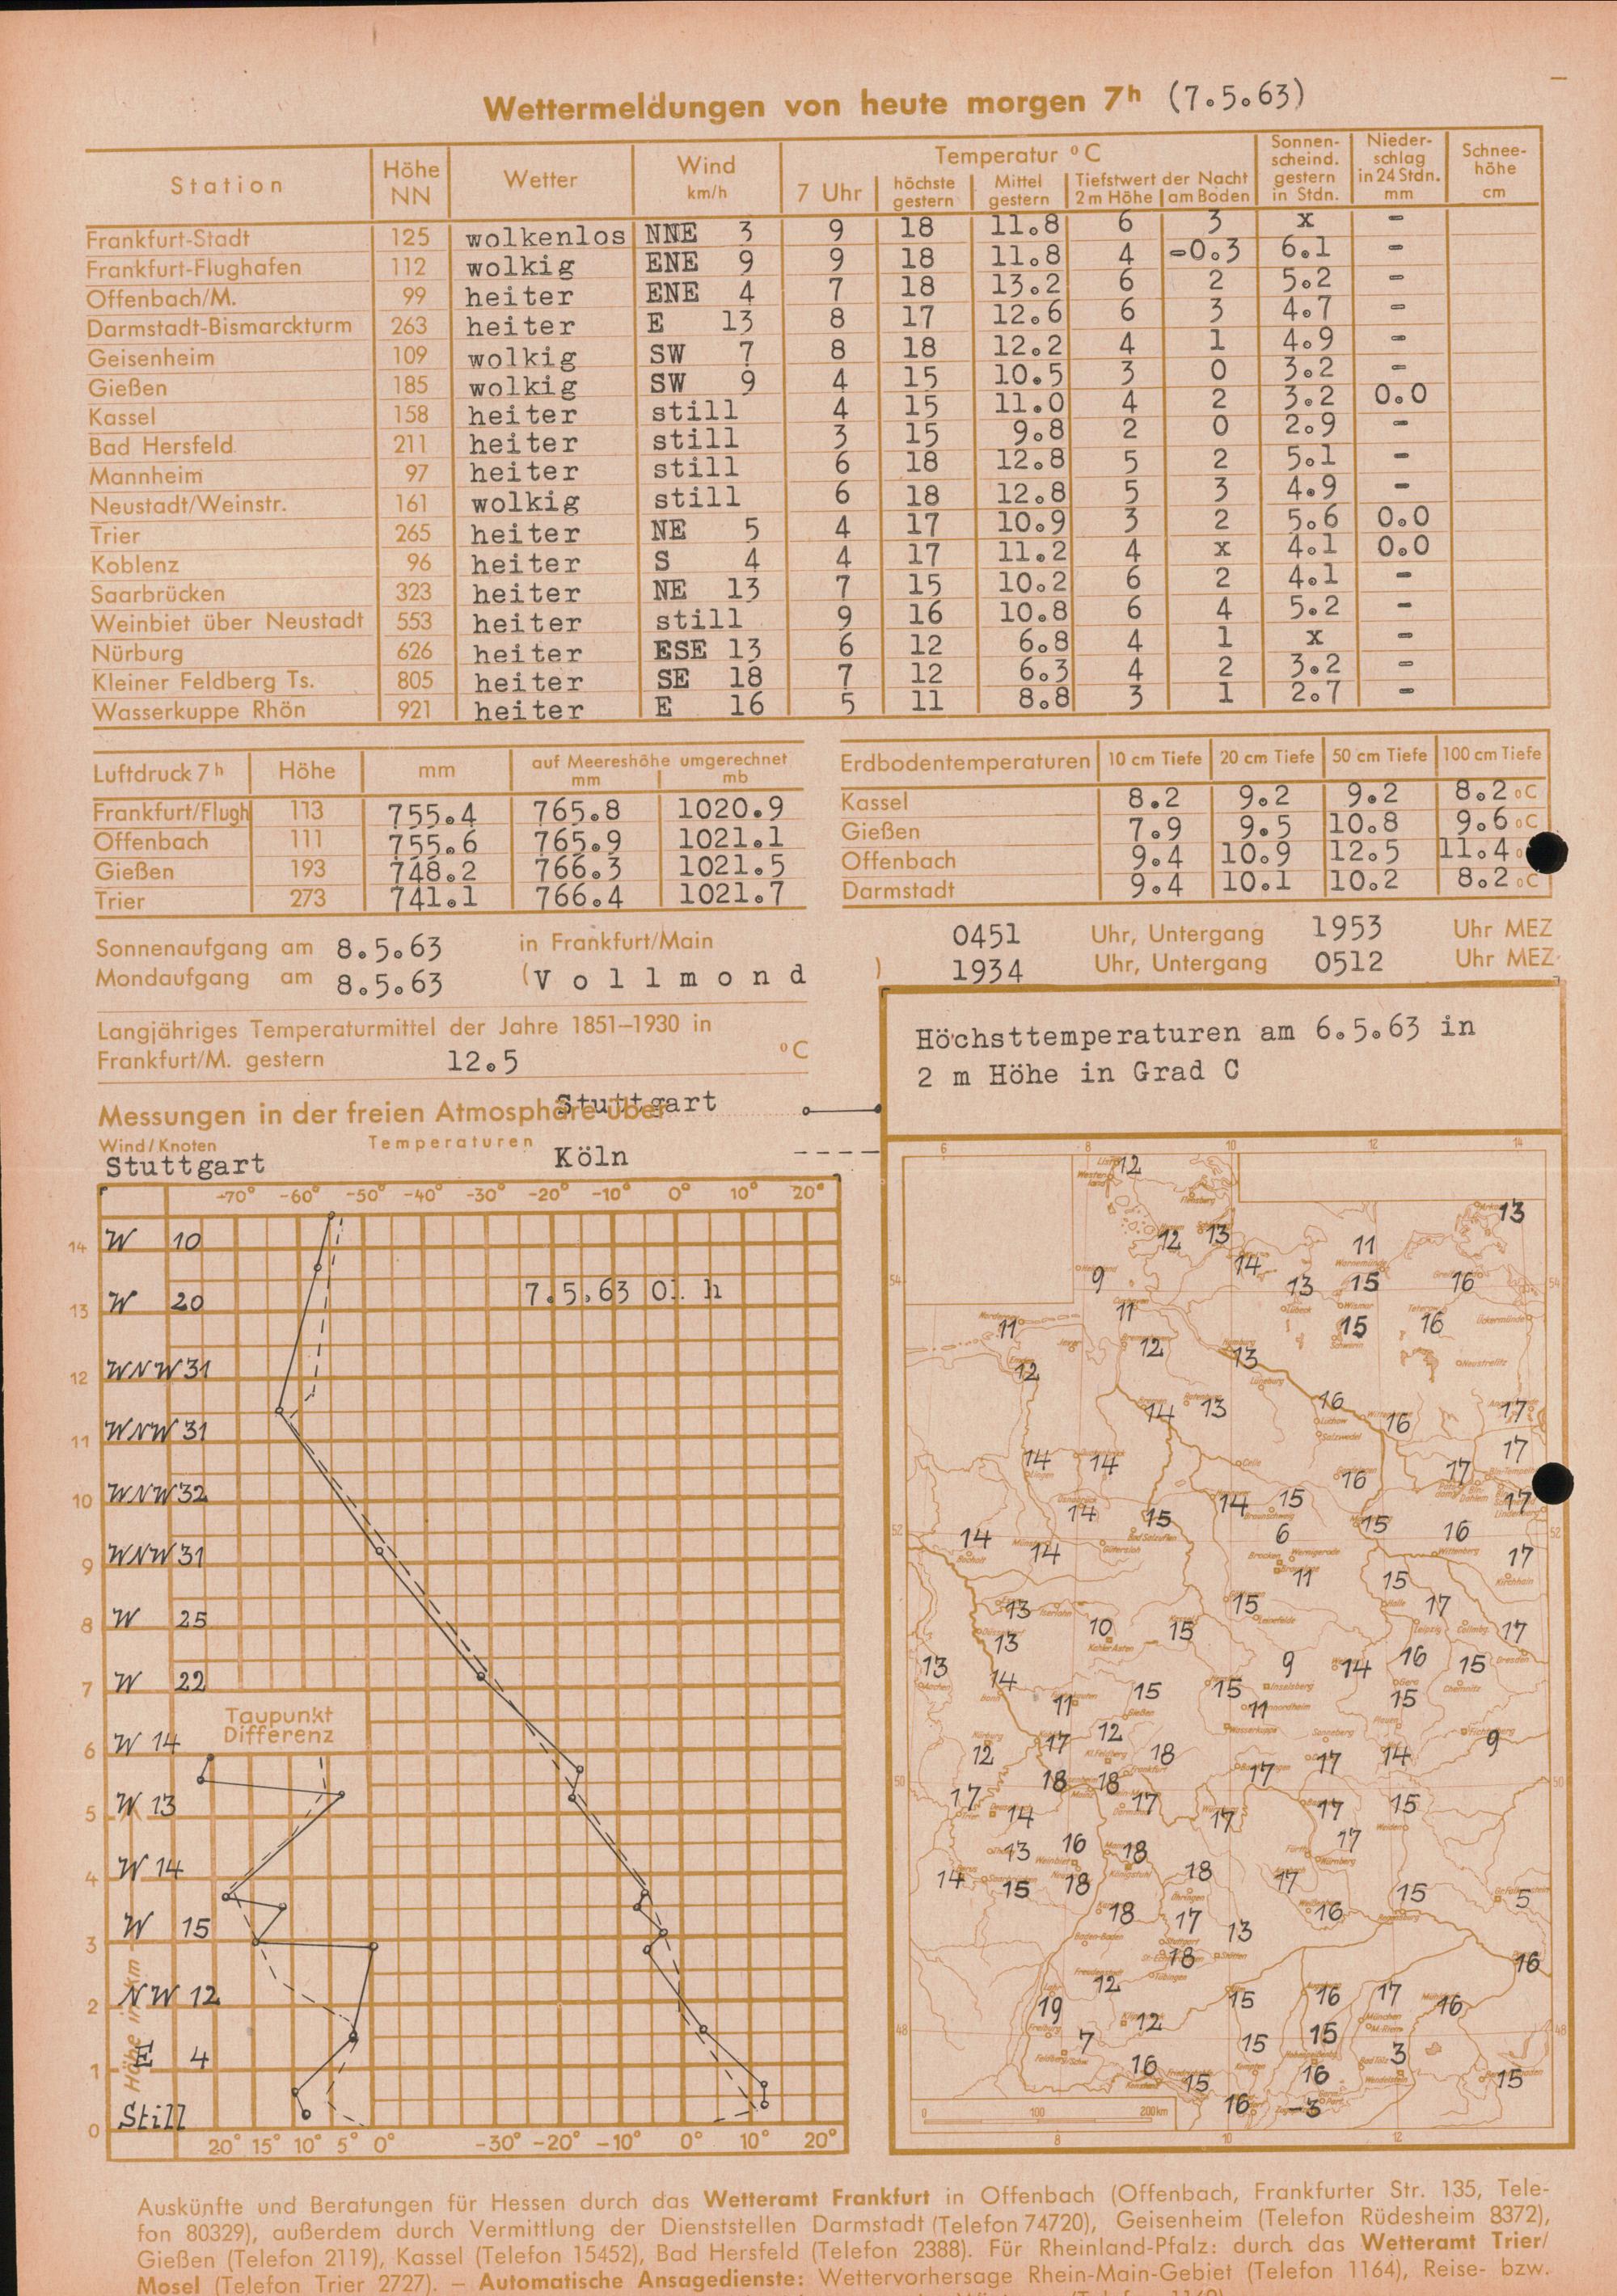 Wettermeldungen von heute morgen 7h (7.5.63)
Station Höhe NN Wetter Wind km/h Temperatur °C Sonnenscheind. gestern in Stdn. Nieder-schlag in 24 Stdn. mm Schnee-höhe cm
7 Uhr höchste gestern Mittel gestern Tiefstwert der Nacht 2 m Höhe am Boden
Frankfurt-Stadt 125 wolkenlos NNE 3 9 18 11.8 6 3 x -
Frankfurt-Flughafen 112 wolkig ENE 9 9 18 11.8 4 -0.3 6.1 -
Offenbach/M. 99 heiter ENE 4 7 18 13.2 6 2 5.2 -
Darmstadt-Bismarckturm 263 heiter E 13 8 17 12.6 6 3 4.7 -
Geisenheim 109 wolkig SW 7 8 18 12.2 4 1 4.9 -
Gießen 185 wolkig SW 9 4 15 10.5 3 0 3.2 -
Kassel 158 heiter still 4 15 11.0 4 2 3.2 0.0
Bad Hersfeld 211 heiter still 3 15 9.8 2 0 2.9 -
Mannheim 97 heiter still 6 18 12.8 5 2 5.1 -
Neustadt/Weinstr. 161 wolkig still 6 18 12.8 5 3 4.9 -
Trier 265 heiter NE 5 4 17 10.9 3 2 5.6 0.0
Koblenz 96 heiter S 4 4 17 11.2 4 x 4.1 0.0
Saarbrücken 323 heiter NE 13 7 15 10.2 6 2 4.1 -
Weinbiet über Neustadt 553 heiter still 9 16 10.8 6 4 5.2 -
Nürburg 626 heiter ESE 13 6 12 6.8 4 1 x -
Kleiner Feldberg Ts. 805 heiter SE 18 7 12 6.3 4 2 3.2 -
Wasserkuppe Rhön 921 heiter E 16 5 11 8.8 3 1 2.7 -
Luftdruck 7h Höhe mm auf Meereshöhe umgerechnet mm mb
Frankfurt/Flugh 113 755.4 765.8 1020.9
Offenbach 111 755.6 765.9 1021.1
Gießen 193 748.2 766.3 1021.5
Trier 273 741.1 766.4 1021.7
Erdbodentemperaturen 10 cm Tiefe 20 cm Tiefe 50 cm Tiefe 100 cm Tiefe
Kassel 8.2 9.2 9.2 8.2 °C
Gießen 7.9 9.5 10.8 9.6 °C
Offenbach 9.4 10.9 12.5 11.4
Darmstadt 9.4 10.1 10.2 8.2 °C
Sonnenaufgang am 8.5.63 in Frankfurt/Main 0451 Uhr, Untergang 1953 Uhr MEZ
Mondaufgang am 8.5.63 (Vollmond ) 1934 Uhr, Untergang 0512 Uhr MEZ
Langjähriges Temperaturmittel der Jahre 1851–1930 in
Frankfurt/M. gestern 12.5 °C
Messungen in der freien Atmosphäre über Stuttgart
Wind/Knoten Temperaturen Köln
Stuttgart
-70° -60° -50° -40° -30° -20° -10° 0° 10° 20°
14 W 10
13 W 20 7.5.63 01 h
12 WNW 31
11 WNW 31
10 WNW 32
9 WNW 31
8 W 25
7 W 22
Taupunkt
Differenz
6 W 14
5 W 13
4 W 14
3 W 15
2 NW 12
1 E 4
0 Still
Höhe in km
20° 15° 10° 5° 0° -30° -20° -10° 0° 10° 20°
Höchsttemperaturen am 6.5.63 in
2 m Höhe in Grad C
6 8 10 12 14
12
13
12 13 11
14
9 13 15 16
11
11 15 16
12 13
12
14 13 16 16 17
14 14 16 17 17
14 15 14 15 15 17
14 14 6 16 17
11 15
13 10 15 15 17 17
13
13 14 15 15 9 14 16 15
11 11 15
12 17 12 18 17 17 14 9
17 14 18 18 17 17 17 15
13 16 18 17
14 15 18 18 17 15 5
18 17 13 16
18 16
19 12 15 16 17 16
7 12 15 15 3
16 15 16 15
16 -3
0 100 200 km
8 10 12
Auskünfte und Beratungen für Hessen durch das Wetteramt Frankfurt in Offenbach (Offenbach, Frankfurter Str. 135, Tele-
fon 80329), außerdem durch Vermittlung der Dienststellen Darmstadt (Telefon 74720), Geisenheim (Telefon Rüdesheim 8372),
Gießen (Telefon 2119), Kassel (Telefon 15452), Bad Hersfeld (Telefon 2388). Für Rheinland-Pfalz: durch das Wetteramt Trier/
Mosel (Telefon Trier 2727). – Automatische Ansagedienste: Wettervorhersage Rhein-Main-Gebiet (Telefon 1164), Reise- bzw.